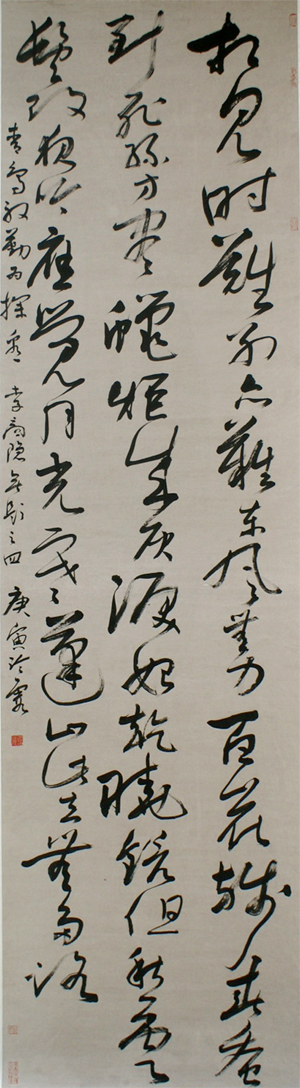 相见时難別亦難东风無力百花残春蚕
到死丝方尽蠟炬成灰淚始乾曉鏡但愁雲
鬢改夜吟應覺月光寒蓬山此去無多路
青鸟殷勤为探看 李商隐無题之四 庚寅